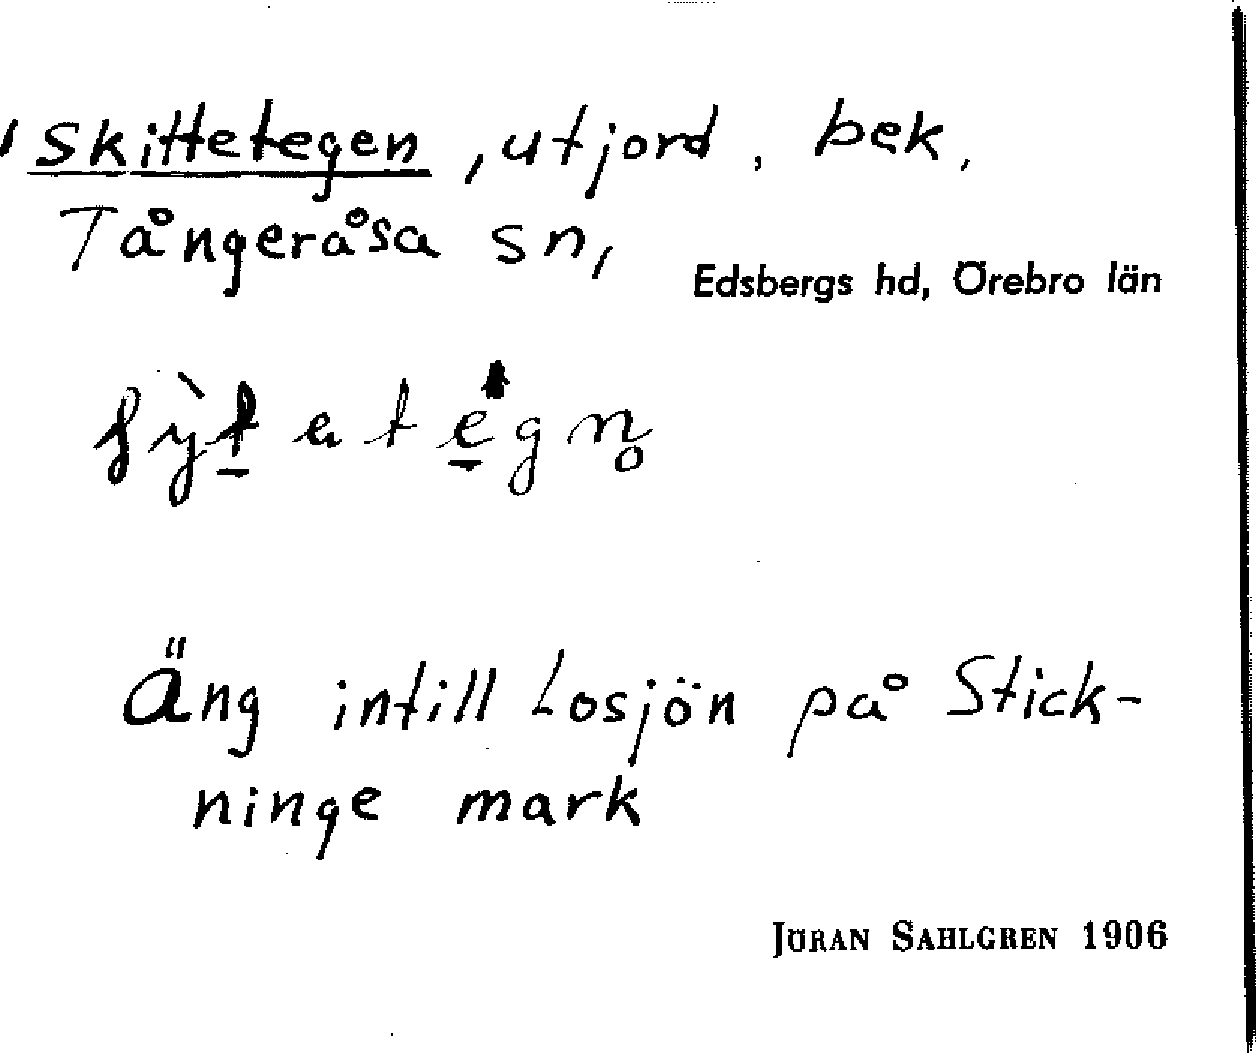 Skittetegen, utjord, bek,
Tångeråsa sn,
Edsbergs hd, Örebro län
Äng intill Losjön på Stick-
ninge mark
JÖRAN SAHLGREN 1906